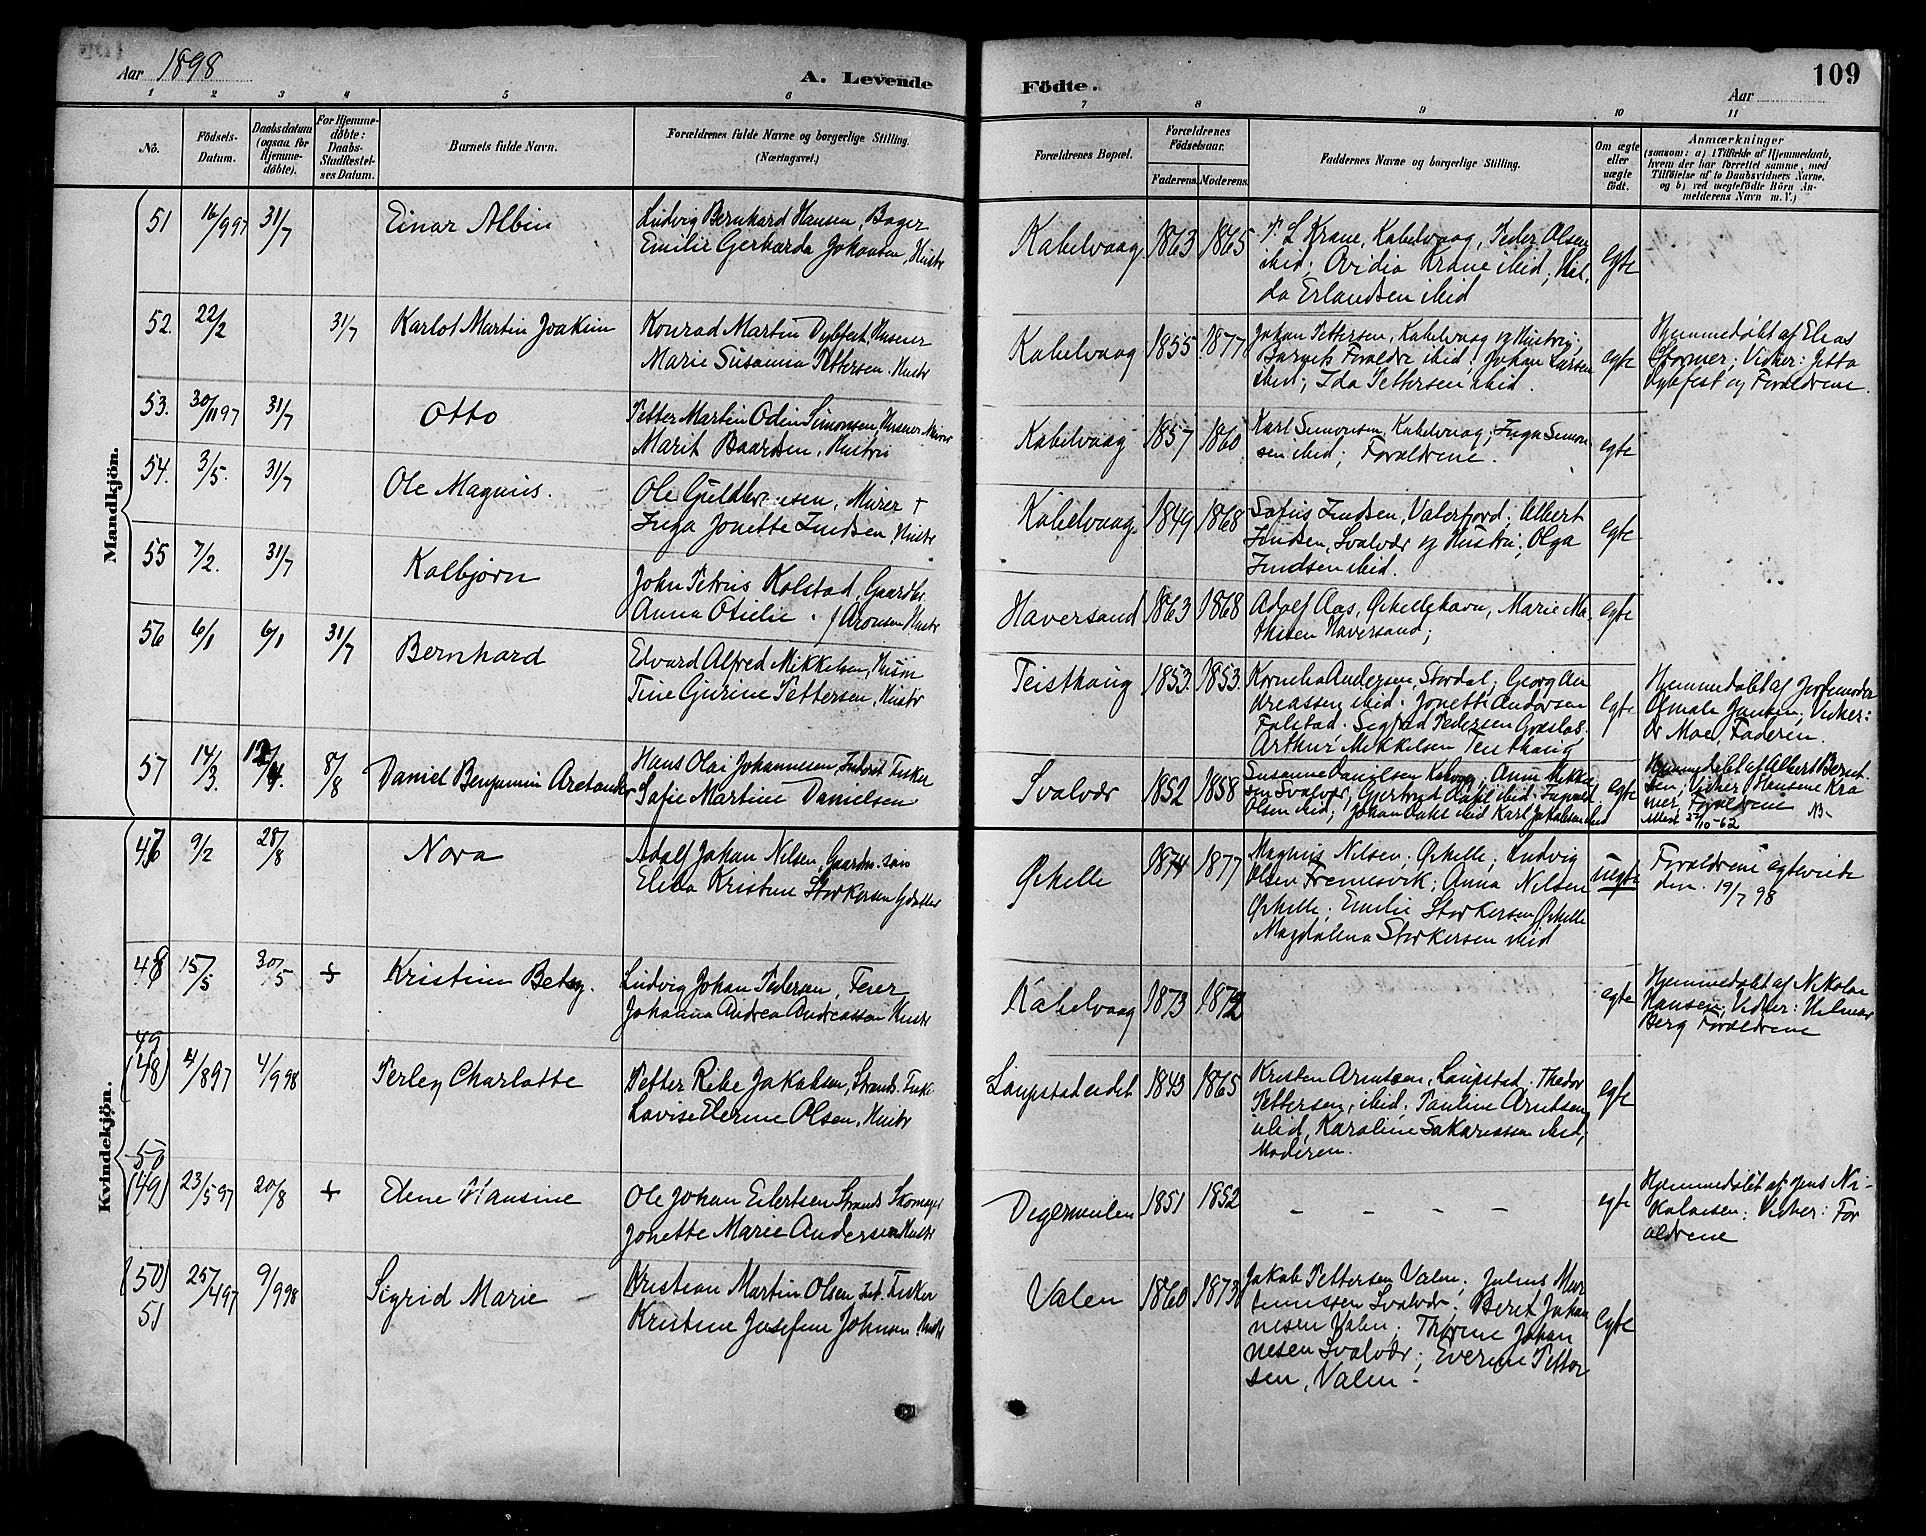 Aar 1898
A. Levende
Födte.
109
Aar
1 2 3 4 5 6 7 8 9 10 11
No.
Födsels-
Datum.
Daabsdatum
(ogsaa for
Hjemme-
döbte).
For Hjemme-
döbte:
Daabs-
Stadfæstel-
ses Datum.
Barnets fulde Navn.
Forældrenes fulde Navne og borgerlige Stilling.
(Næringsvei.)
Forældrenes Bopæl.
Forældrenes
Födselsaar.
Faderens. Moderens.
Faddernes Navne og borgerlige Stilling.
Om ægte
eller
uægte
födt.
Anmærkninger
(saasom: a) i Tilfælde af Hjemmedaab,
hvem der har forrettet samme, med
Tilföielse af to Daabsvidners Navne,
og b) ved uægtefödte Börn An-
melderens Navn m. V.)
Mandkjön.
51 16/9 97 31/7 Einar Albin
Ludvig Bernhard Hansen, Bager
Emilie Gerharda Johansen, Hustr
Kabelvaag 1863 1865
P. L. Krane, Kabelvaag, Peder Olsen
ibid; Ovidia Krane ibid; Hil-
da Erlandsen ibid
egte
52. 22/2 31/7 Karlot Martin Joakim
Konrad Martin Dybfest, Husener
Marie Susanna Pettersen, Hustr
Kabelvaag 1855 1877
Johan Pettersen, Kabelvaag og Hustru;
Barnets Forældre ibid; Johan Larsen
ibid; Ida Pettersen ibid.
egte
Hjemmedøbt af Elias
Stormer; Vidner: Jetta
Dybfest og Forældrene.
53. 30/11 97 31/7 Otto
Petter Martin Odin Simonsen, Husener Murer
Marit Baardsen, Hustru
Kabelvaag 1857 1860
Karl Simonsen, Kabelvaag; Inga Simon
sen ibid; Forældrene.
egte
54. 3/5. 31/7 Ole Magnus.
Ole Guldbr sen, Murer +
Inga Jonette Indsen, Hustr
Kabelvaag. 1849 1868
Sofus Indsen, Valerfjord; Albert
Indsen, Svalvær og Hustru; Olga
Indsen ibid.
egte
55 7/2. 31/7 Kolbjørn
John Petrus Kolstad, Gaardbr.
Anna Otielie Aronsen Hustr
Haversand 1863 1868
Adolf Aas, Ørhellehavn, Marie Ma-
thisen Haversand;
egte
56 6/1 6/1 31/7 Bernhard
Edvard Alfred Mikkelsen, Husm
Tine Gurine Pettersen, Hustr
Teisthaug 1853. 1853.
Kornelia Andersen, Stordal; Georg An
dreassen ibid; Jonette Andersen
Falstad. Sigfrid Pedersen
Arthur Mikkelsen Teisthaug
egte
Hjemmedøbt af Jordemoder
Jansen; Vidner:
Dr Moe, Faderen.
57 14/3. 12/4. 8/8 Daniel Benjamin Aretander
Hans Olai Johannesen, Inderst Fisker
Sofie Martine Danielsen
Svalvær 1852 1858
Susanne Danielsen Kalvaag; Anne Mikkel
sen Svalvær; Gjertrud Dahl ibid;
Olsen ibid; Johan Dahl ibid Karl Jakobsen ibid
egte
Hjemmedøbt af Albert Bernt
sen; Vidner: Hansine Kra
mer, Forældrene
Attest 27/10-62 NB-
Kvindekjön.
47 9/2 28/8 Nora
Adolf Johan Nilsen, Gaardm.søn
Elida Kristine Storkersen Gdatter
Ørhelle 1874 1877
Magnus Nilsen, Ørhelle; Ludvig
Olsen Fremesvik; Anna Nilsen
Ørhelle; Emilie Storkersen Ørhelle
Magdalena Storkersen ibid
uegte
Forældrene egteviede
den 19/7 98
48 15/5 30/5 + Kristine Betsy.
Ludvig Johan Pedersen, Feier
Johanna Andrea Andreassen Hustr
Kabelvaag 1873 1872
egte
Hjemmedøbt af Nikolai
Hansen, Vidner: Hilmar
Berg Forældrene
49
(48) 4/8 97 4/9 98 Perley Charlotte
Petter Ribe Jakobsen, Strands. Fisker
Lovise Elerine Olsen, Hustr
Laupstadeidet 1843 1865
Kristen Arntsen, Laupstad; Thedor
Pettersen, ibid; Pauline Arntsen
ibid, Karoline Sakariassen ibid,
Moderen.
egte
50
(49) 23/5 97 20/8 + Elene Hansine
Ole Johan Eilertsen Strands Skomager
Jonette Marie Andersen Hustr
Digermulen 1851 1852
- - - -
egte
Hjemmedøbt af Jens Ni-
kolaisen; Vidner: For
ældrene
(50) 25/4 97 9/9 98 Sigrid Marie
51
Kristian Martin Olsen Ind. Fisker
Kristine Josefine Johnsen, Hustr
Valen 1860 1873
Jakob Pettersen Valen; Julius Mar
tinussen Svalvær; Berit Johan
nesen Valen; Thorine Johan
nesen Svalvær; Everine Petter
sen, Valen.
egte